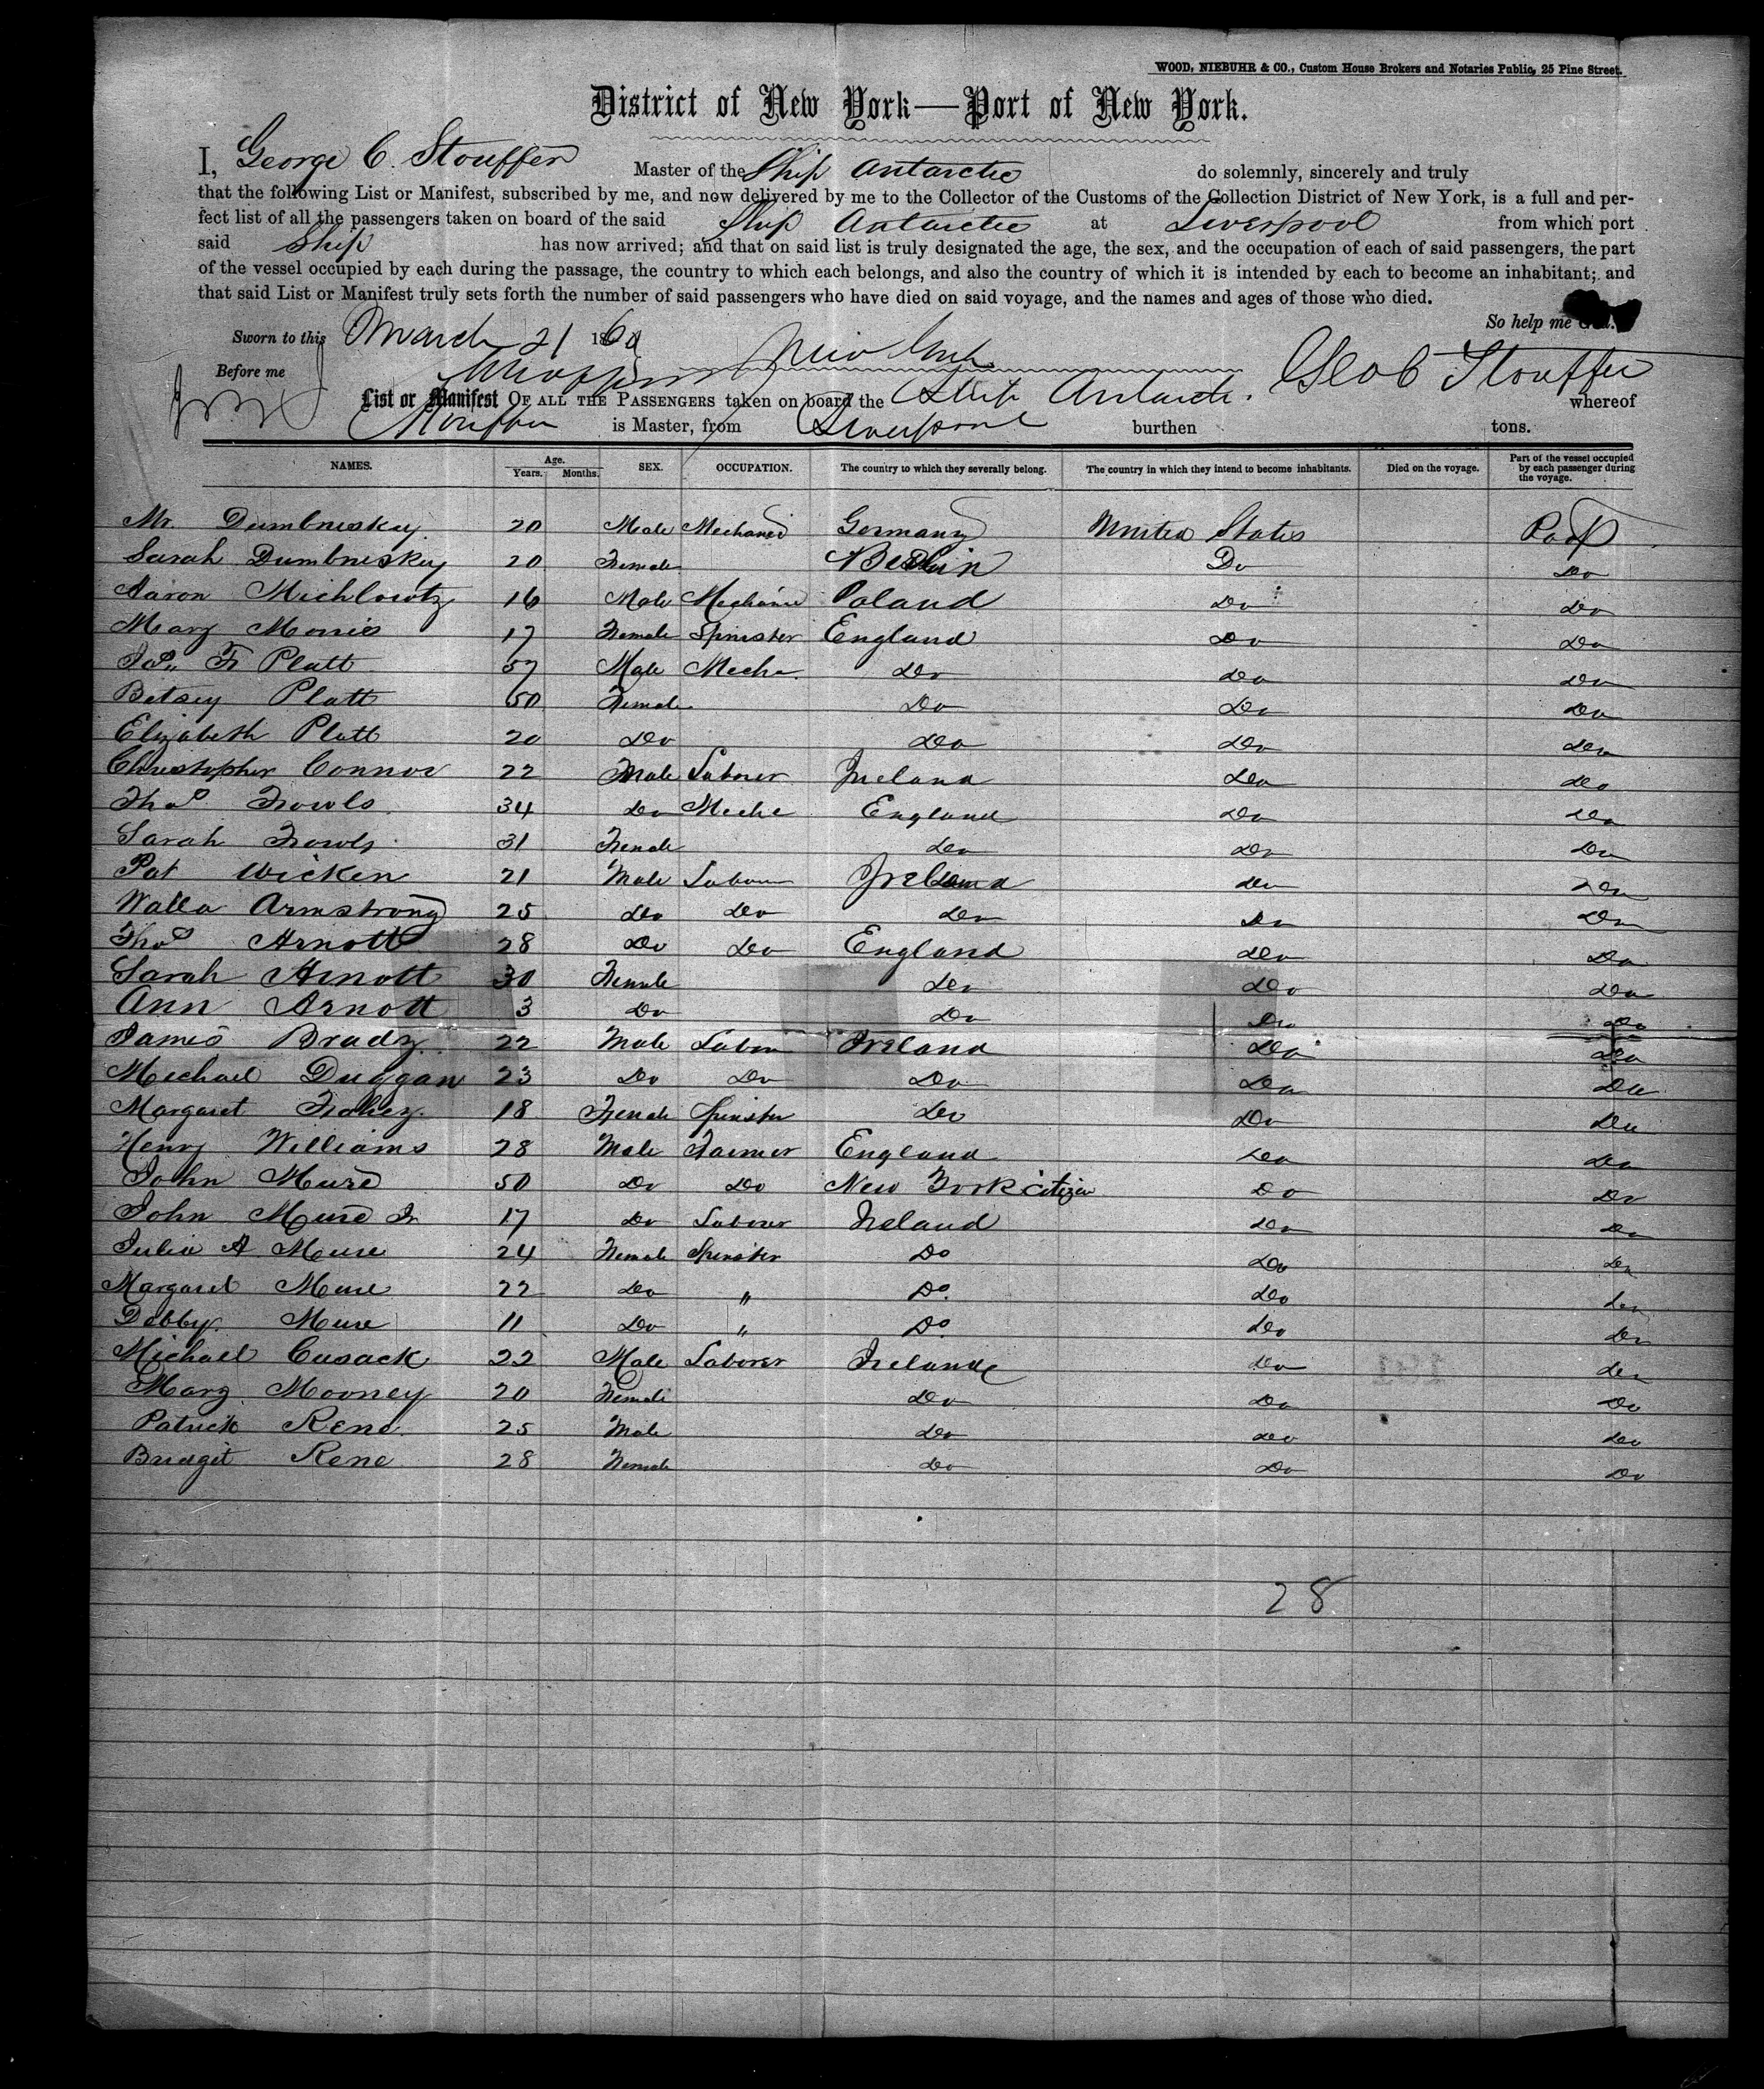 WOOD, NIEBUHR & CO., Custom House Brokers and Notaries Public, 25 Pine Street.
District of New York—Port of New York.
I, George C. Stouffer Master of the Ship Antarctic do solemnly, sincerely and truly
that the following List or Manifest, subscribed by me, and now delivered by me to the Collector of the Customs of the Collection District of New York, is a full and per-
fect list of all the passengers taken on board of the said Ship Antarctic at Liverpool from which port
said Ship has now arrived; and that on said list is truly designated the age, the sex, and the occupation of each of said passengers, the part
of the vessel occupied by each during the passage, the country to which each belongs, and also the country of which it is intended by each to become an inhabitant; and
that said List or Manifest truly sets forth the number of said passengers who have died on said voyage, and the names and ages of those who died.
So help me God.
Sworn to this March 21 186
Before me New York Geo C Stouffer
List or Manifest OF ALL THE PASSENGERS taken on board the Ship Antarctic. whereof
Stouffer is Master, from Liverpool burthen tons.
NAMES. Age. Years. Months. SEX. OCCUPATION. The country to which they severally belong. The country in which they intend to become inhabitants. Died on the voyage. Part of the vessel occupied by each passenger during the voyage.
Mr. Dumbneskey 20 Male Mechanic Germany United States
Sarah Dumbneskey 20 Female Berlin Do Do
Aaron Michlowtz 16 Male Mechanic Poland Do Do
Mary Morris 17 Female Spinster England Do Do
Platt 57 Male Mecha. Do Do Do
Betsey Platt 50 Female Do Do Do
Elizabeth Platt 20 Do Do Do Do
Christopher Connor 22 Male Laborer Ireland Do Do
Thos Fowls 34 Do Mecha England Do Do
Sarah Fowls 31 Female Do Do Do
Pat Wicken 21 Male Labour Ireland Do Do
Walla Armstrong 25 Do Do Do Do Do
Thos Arnott 28 Do Do England Do Do
Sarah Arnott 30 Female Do Do Do
Ann Arnott 3 Do Do Do Do
James Brady 22 Male Labou Ireland Do Do
Michael Duggan 23 Do Do Do Do Do
Margaret Fahey 18 Female Spinster Do Do Do
Henry Williams 28 Male Farmer England Do Do
John Mure 50 Do Do New York citizen Do Do
John Mure Jr 17 Do Laborer Ireland Do Do
Julia A Mure 24 Female Spinster Do Do Do
Margaret Mure 22 Do " Do. Do Do
Debby. Mure 11 Do " Do. Do Do
Michael Cusack 22 Male Laborer Ireland Do Do
Mary Mooney 20 Female Do Do Do
Patrick Rene. 25 Male Do Do Do
Bridgit Rene 28 Female Do Do Do
28